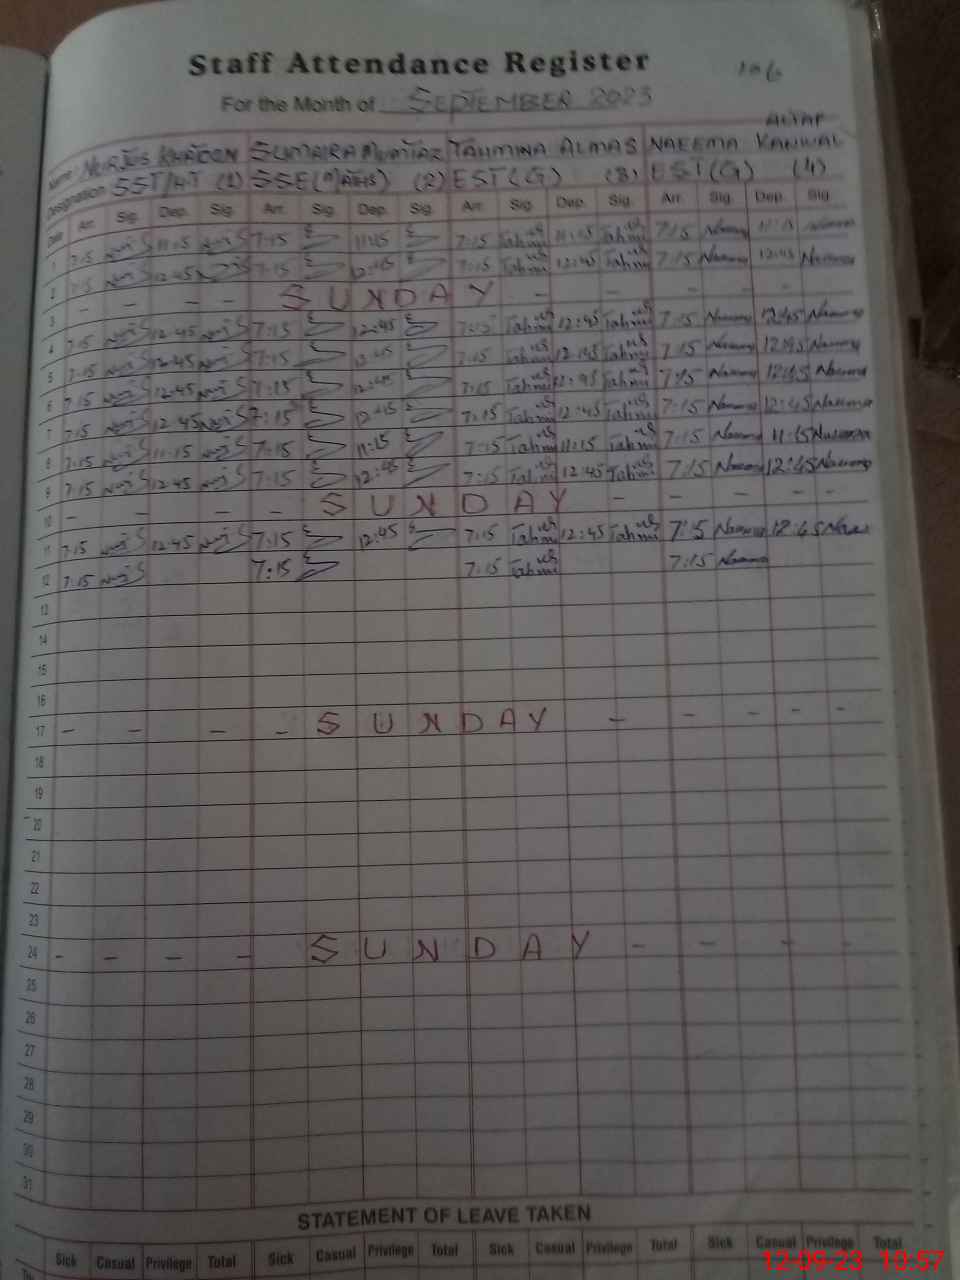 Staff Attendance Register
106
For the Month of SEPTEMBER 2023
Name NURJUS KHATOON SUMAIRA MUMTAZ TAHMINA ALMAS NAEEMA ALTAF KANWAL
Designation SST/HT (1) SSE(MATHS) (2) EST(G) (3) EST(G) (4)
Date Arr. Sig. Dep. Sig. Arr. Sig. Dep. Sig. Arr. Sig. Dep. Sig. Arr. Sig. Dep. Sig.
1 7:15 11:15 7:15 11:15 7:15 Tahmi 11:15 Tahmi 7:15 11:15
2 7:15 12:45 7:15 12:45 7:15 Tahmi 12:45 Tahmi 7:15 12:45
3 - - - - SUNDAY - - - - -
4 7:15 12:45 7:15 12:45 7:15 Tahmi 12:45 Tahmi 7:15 12:45
5 7:15 12:45 7:15 12:45 7:15 Tahmi 12:45 Tahmi 7:15 12:45
6 7:15 12:45 7:15 12:45 7:15 Tahmi 12:45 Tahmi 7:15 12:45
7 7:15 12:45 7:15 12:45 7:15 Tahmi 12:45 Tahmi 7:15 12:45
8 7:15 11:15 7:15 11:15 7:15 Tahmi 11:15 Tahmi 7:15 11:15
9 7:15 12:45 7:15 12:45 7:15 Tahmi 12:45 Tahmi 7:15 12:45
10 - - - - SUNDAY - - - - -
11 7:15 12:45 7:15 12:45 7:15 Tahmi 12:45 Tahmi 7:15 12:45
12 7:15 7:15 7:15 Tahmi 7:15
13
14
15
16
17 - - - - SUNDAY - - - - -
18
19
20
21
22
23
24 - - - - SUNDAY - - - -
25
26
27
28
29
30
31
STATEMENT OF LEAVE TAKEN
Sick Casual Privilege Total Sick Casual Privilege Total Sick Casual Privilege Total Sick Casual Privilege Total
12-09-23 10:57